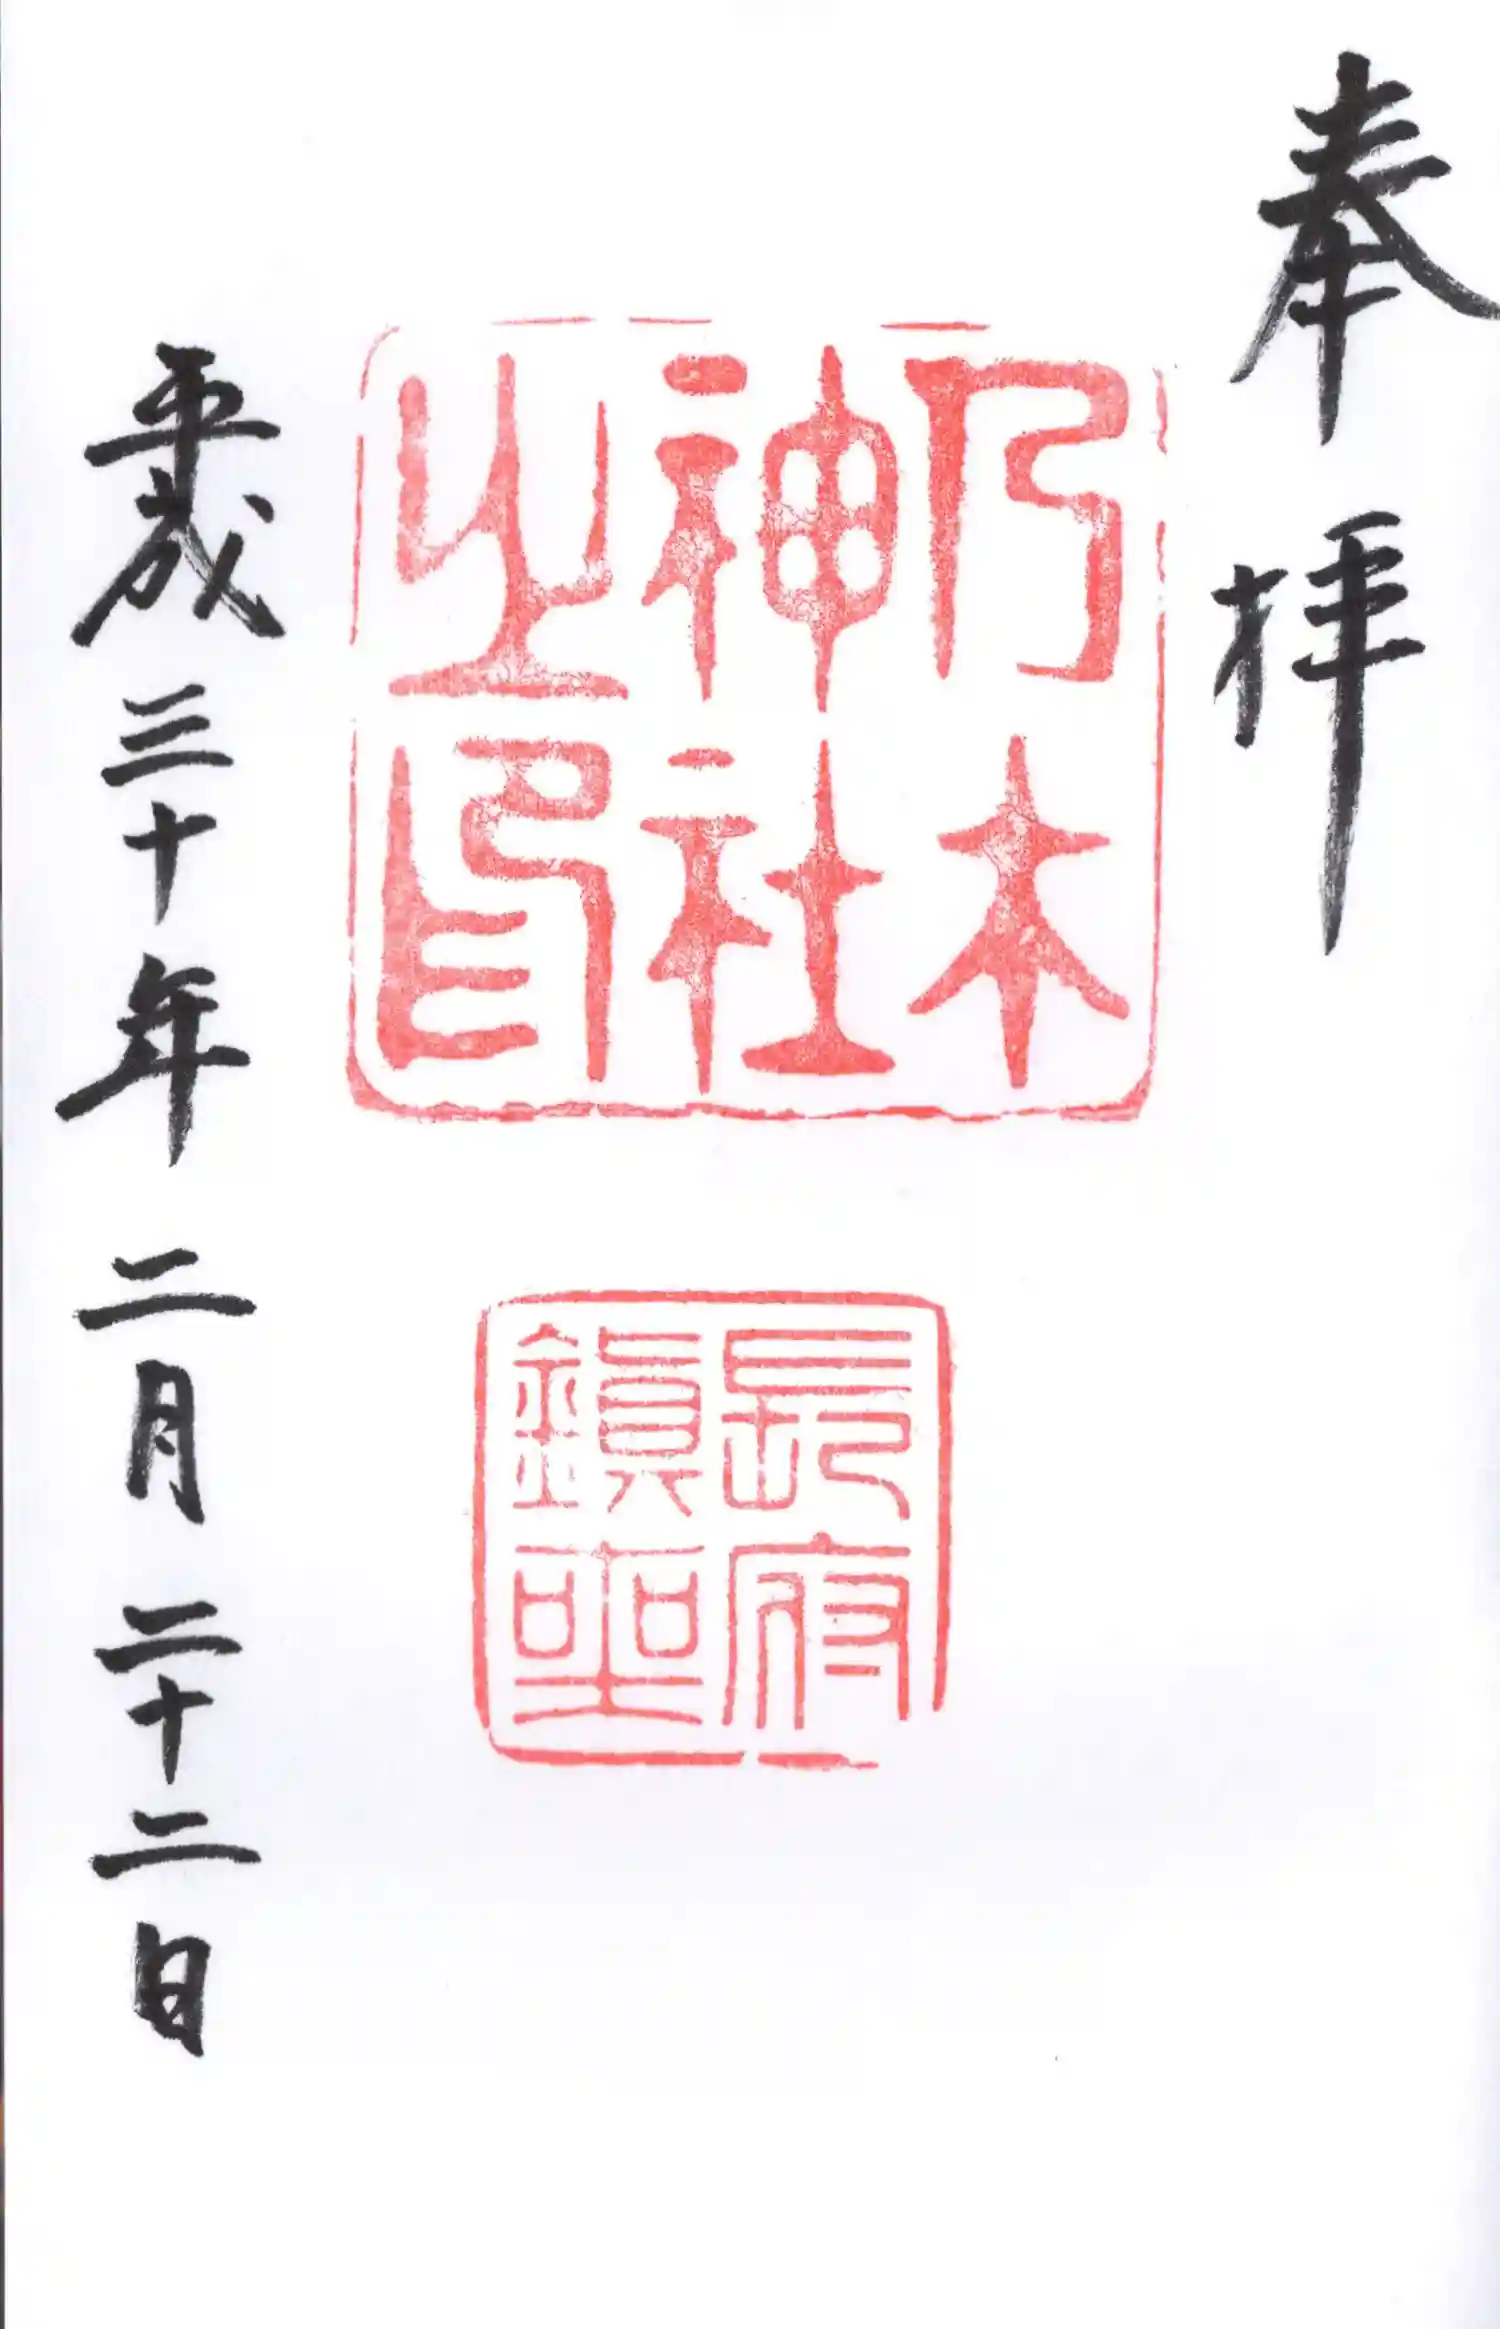 奉拝
乃木
神社
之印
長府
鎭坐
平成三十年二月二十二日